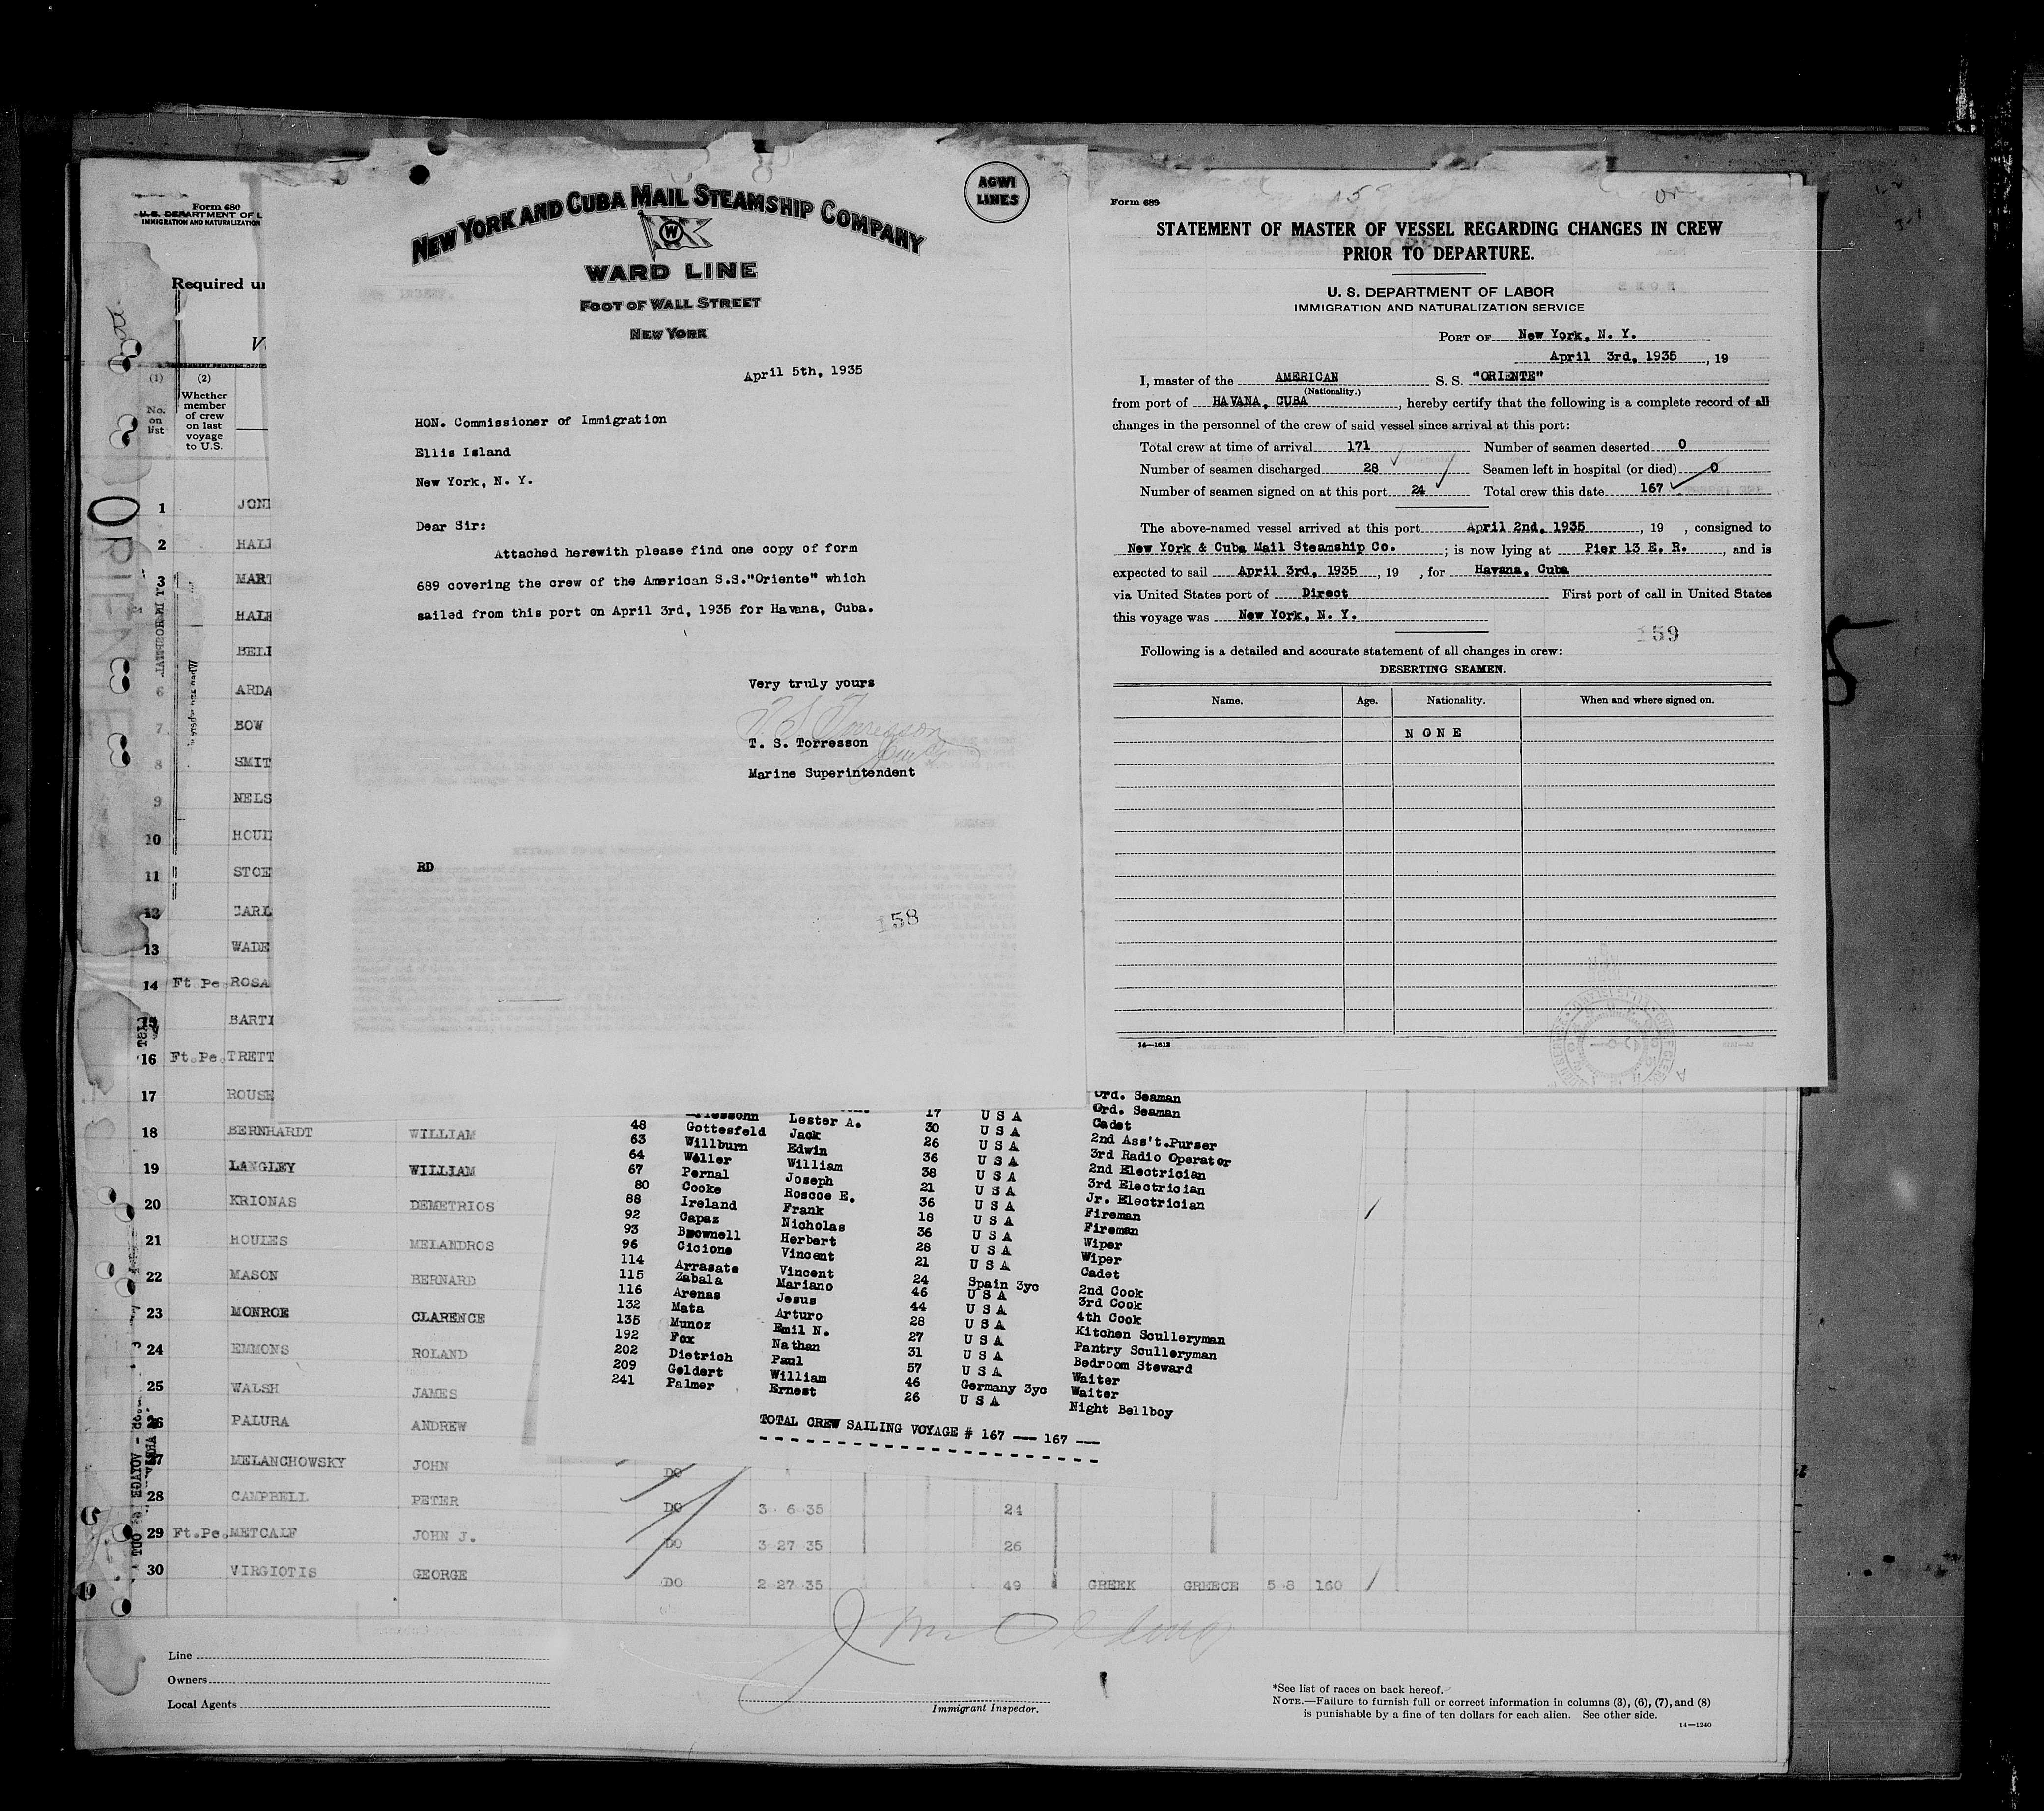 Form 680
U. S. DEPARTMENT OF L
IMMIGRATION AND NATURALIZATION
Required un
(1)
No. on list
(2)
Whether member of crew on last voyage to U.S.
1 JONE
2 HALL
3 MART
HALE
BELL
6 ARDA
7 BOW
8 SMIT
9 NELS
10 HOUL
11 STOE
12 CARL
13 WADE
14 Ft.Pe. ROSA
15 BARTI
16 Ft.Pe. TRETT
17 ROUSE
18 BERNHARDT WILLIAM
19 LANGLEY WILLIAM
20 KRIONAS DEMETRIOS
21 HOULES MELANDROS
22 MASON BERNARD
23 MONROE CLARENCE
24 EMMONS ROLAND
25 WALSH JAMES
26 PALURA ANDREW
27 MELANCHOWSKY JOHN DO
28 CAMPBELL PETER DO 3 6 35 24
29 Ft.Pe. METCALF JOHN J. DO 3 27 35 26
30 VIRGIOTIS GEORGE DO 2 27 35 49 GREEK GREECE 5 8 160
Line
Owners
Local Agents
Immigrant Inspector.
*See list of races on back hereof.
NOTE.—Failure to furnish full or correct information in columns (3), (6), (7), and (8)
is punishable by a fine of ten dollars for each alien. See other side.
14—1240
ORIENTE
AGWI
LINES
NEW YORK AND CUBA MAIL STEAMSHIP COMPANY
W
WARD LINE
FOOT OF WALL STREET
NEW YORK
April 5th, 1935
HON. Commissioner of Immigration
Ellis Island
New York, N. Y.
Dear Sir:
Attached herewith please find one copy of form
689 covering the crew of the American S.S."Oriente" which
sailed from this port on April 3rd, 1935 for Havana, Cuba.
Very truly yours
T. S. Torresson
T. S. Torresson
Marine Superintendent
RD
158
Form 689
STATEMENT OF MASTER OF VESSEL REGARDING CHANGES IN CREW
PRIOR TO DEPARTURE.
U. S. DEPARTMENT OF LABOR
IMMIGRATION AND NATURALIZATION SERVICE
PORT OF New York, N. Y.
April 3rd, 1935, 19
I, master of the AMERICAN S. S. "ORIENTE"
(Nationality.)
from port of HAVANA, CUBA, hereby certify that the following is a complete record of all
changes in the personnel of the crew of said vessel since arrival at this port:
Total crew at time of arrival 171 Number of seamen deserted 0
Number of seamen discharged 28 Seamen left in hospital (or died) 0
Number of seamen signed on at this port 24 Total crew this date 167
The above-named vessel arrived at this port April 2nd, 1935, 19 , consigned to
New York & Cuba Mail Steamship Co. ; is now lying at Pier 13 E. R., and is
expected to sail April 3rd, 1935, 19 , for Havana, Cuba
via United States port of Direct First port of call in United States
this voyage was New York, N. Y.
159
Following is a detailed and accurate statement of all changes in crew:
DESERTING SEAMEN.
Name. Age. Nationality. When and where signed on.
N O N E
14—1613
Ord. Seaman
Lester A. 17 U S A Ord. Seaman
48 Gottesfeld Jack 30 U S A Cadet
63 Willburn Edwin 26 U S A 2nd Ass't.Purser
64 Weller William 36 U S A 3rd Radio Operator
67 Pernal Joseph 38 U S A 2nd Electrician
80 Cooke Roscoe E. 21 U S A 3rd Electrician
88 Ireland Frank 36 U S A Jr. Electrician
92 Capaz Nicholas 18 U S A Fireman
93 Brownell Herbert 36 U S A Fireman
96 Cicione Vincent 28 U S A Wiper
114 Arrasate Vincent 21 U S A Wiper
115 Zabala Mariano 24 Spain 3yc Cadet
116 Arenas Jesus 46 U S A 2nd Cook
132 Mata Arturo 44 U S A 3rd Cook
135 Munoz Emil N. 28 U S A 4th Cook
192 Fox Nathan 27 U S A Kitchen Sculleryman
202 Dietrich Paul 31 U S A Pantry Sculleryman
209 Geldert William 57 U S A Bedroom Steward
241 Palmer Ernest 46 Germany 3yc Waiter
26 U S A Waiter
Night Bellboy
TOTAL CREW SAILING VOYAGE # 167 --- 167 ---